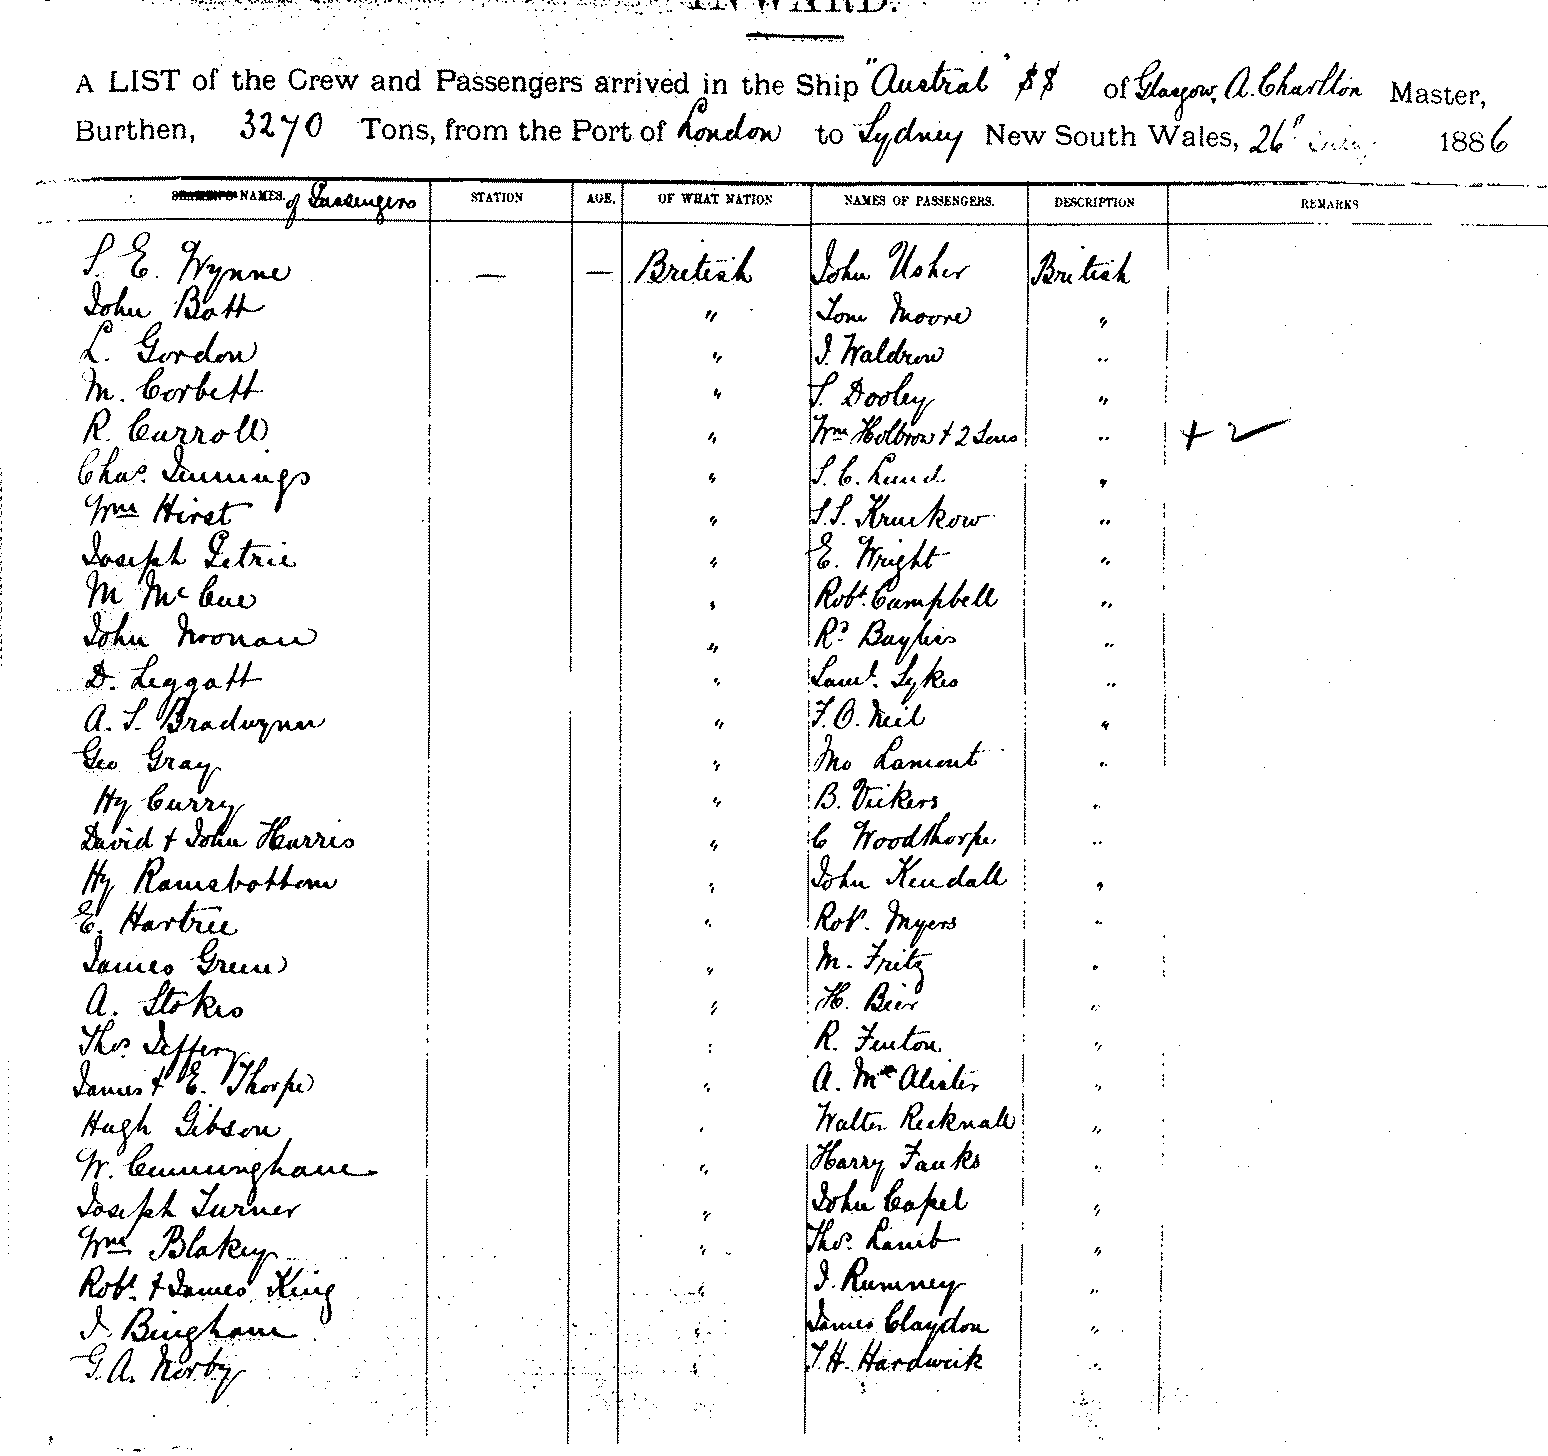 INWARD.
A LIST of the Crew and Passengers arrived in the Ship "Austral" SS of Glasgow, A. Charlton Master,
Burthen, 3270 Tons, from the Port of London to Sydney New South Wales, 26th 1886
NAMES of Passengers STATION AGE. OF WHAT NATION NAMES OF PASSENGERS. DESCRIPTION REMARKS
S. E. Wynne — — British John Usher British
John Batt " Tom Moore "
L. Gordon " J. Waldron "
M. Corbett " S. Dooley "
R. Carroll " Wm Holbrow + 2 Sons " + 2
Chas. Jennings " S. C. Lund "
Wm Hirst " S. S. Kruckow "
Joseph Petrie " E. Wright "
M McCue " Robt. Campbell "
John Noonan " Rd Bayliss "
D. Leggatt " Saml. Sykes "
A. S. Bradwynn " F. O. Neil "
Geo Gray " Lamont "
Hy Curry " B. Vickers "
David + John Harris " C Woodthorpe "
Hy Ramsbottom " John Kendall "
E. Hartree " Robt. Myers "
James Green " M. Fritz "
A. Stokes " H. Bier "
Thos Jeffery " R. Fenton "
James + E. Thorpe " A. Mc Alister "
Hugh Gibson " Walter Recknall "
W. Cunningham " Harry Fawks "
Joseph Turner " John Capel "
Wm Blakey " Thos. Lamb "
Robt. + James King " J. Rumney "
J. Bingham " James Claydon "
G. A. Norby " T. H. Hardwick "